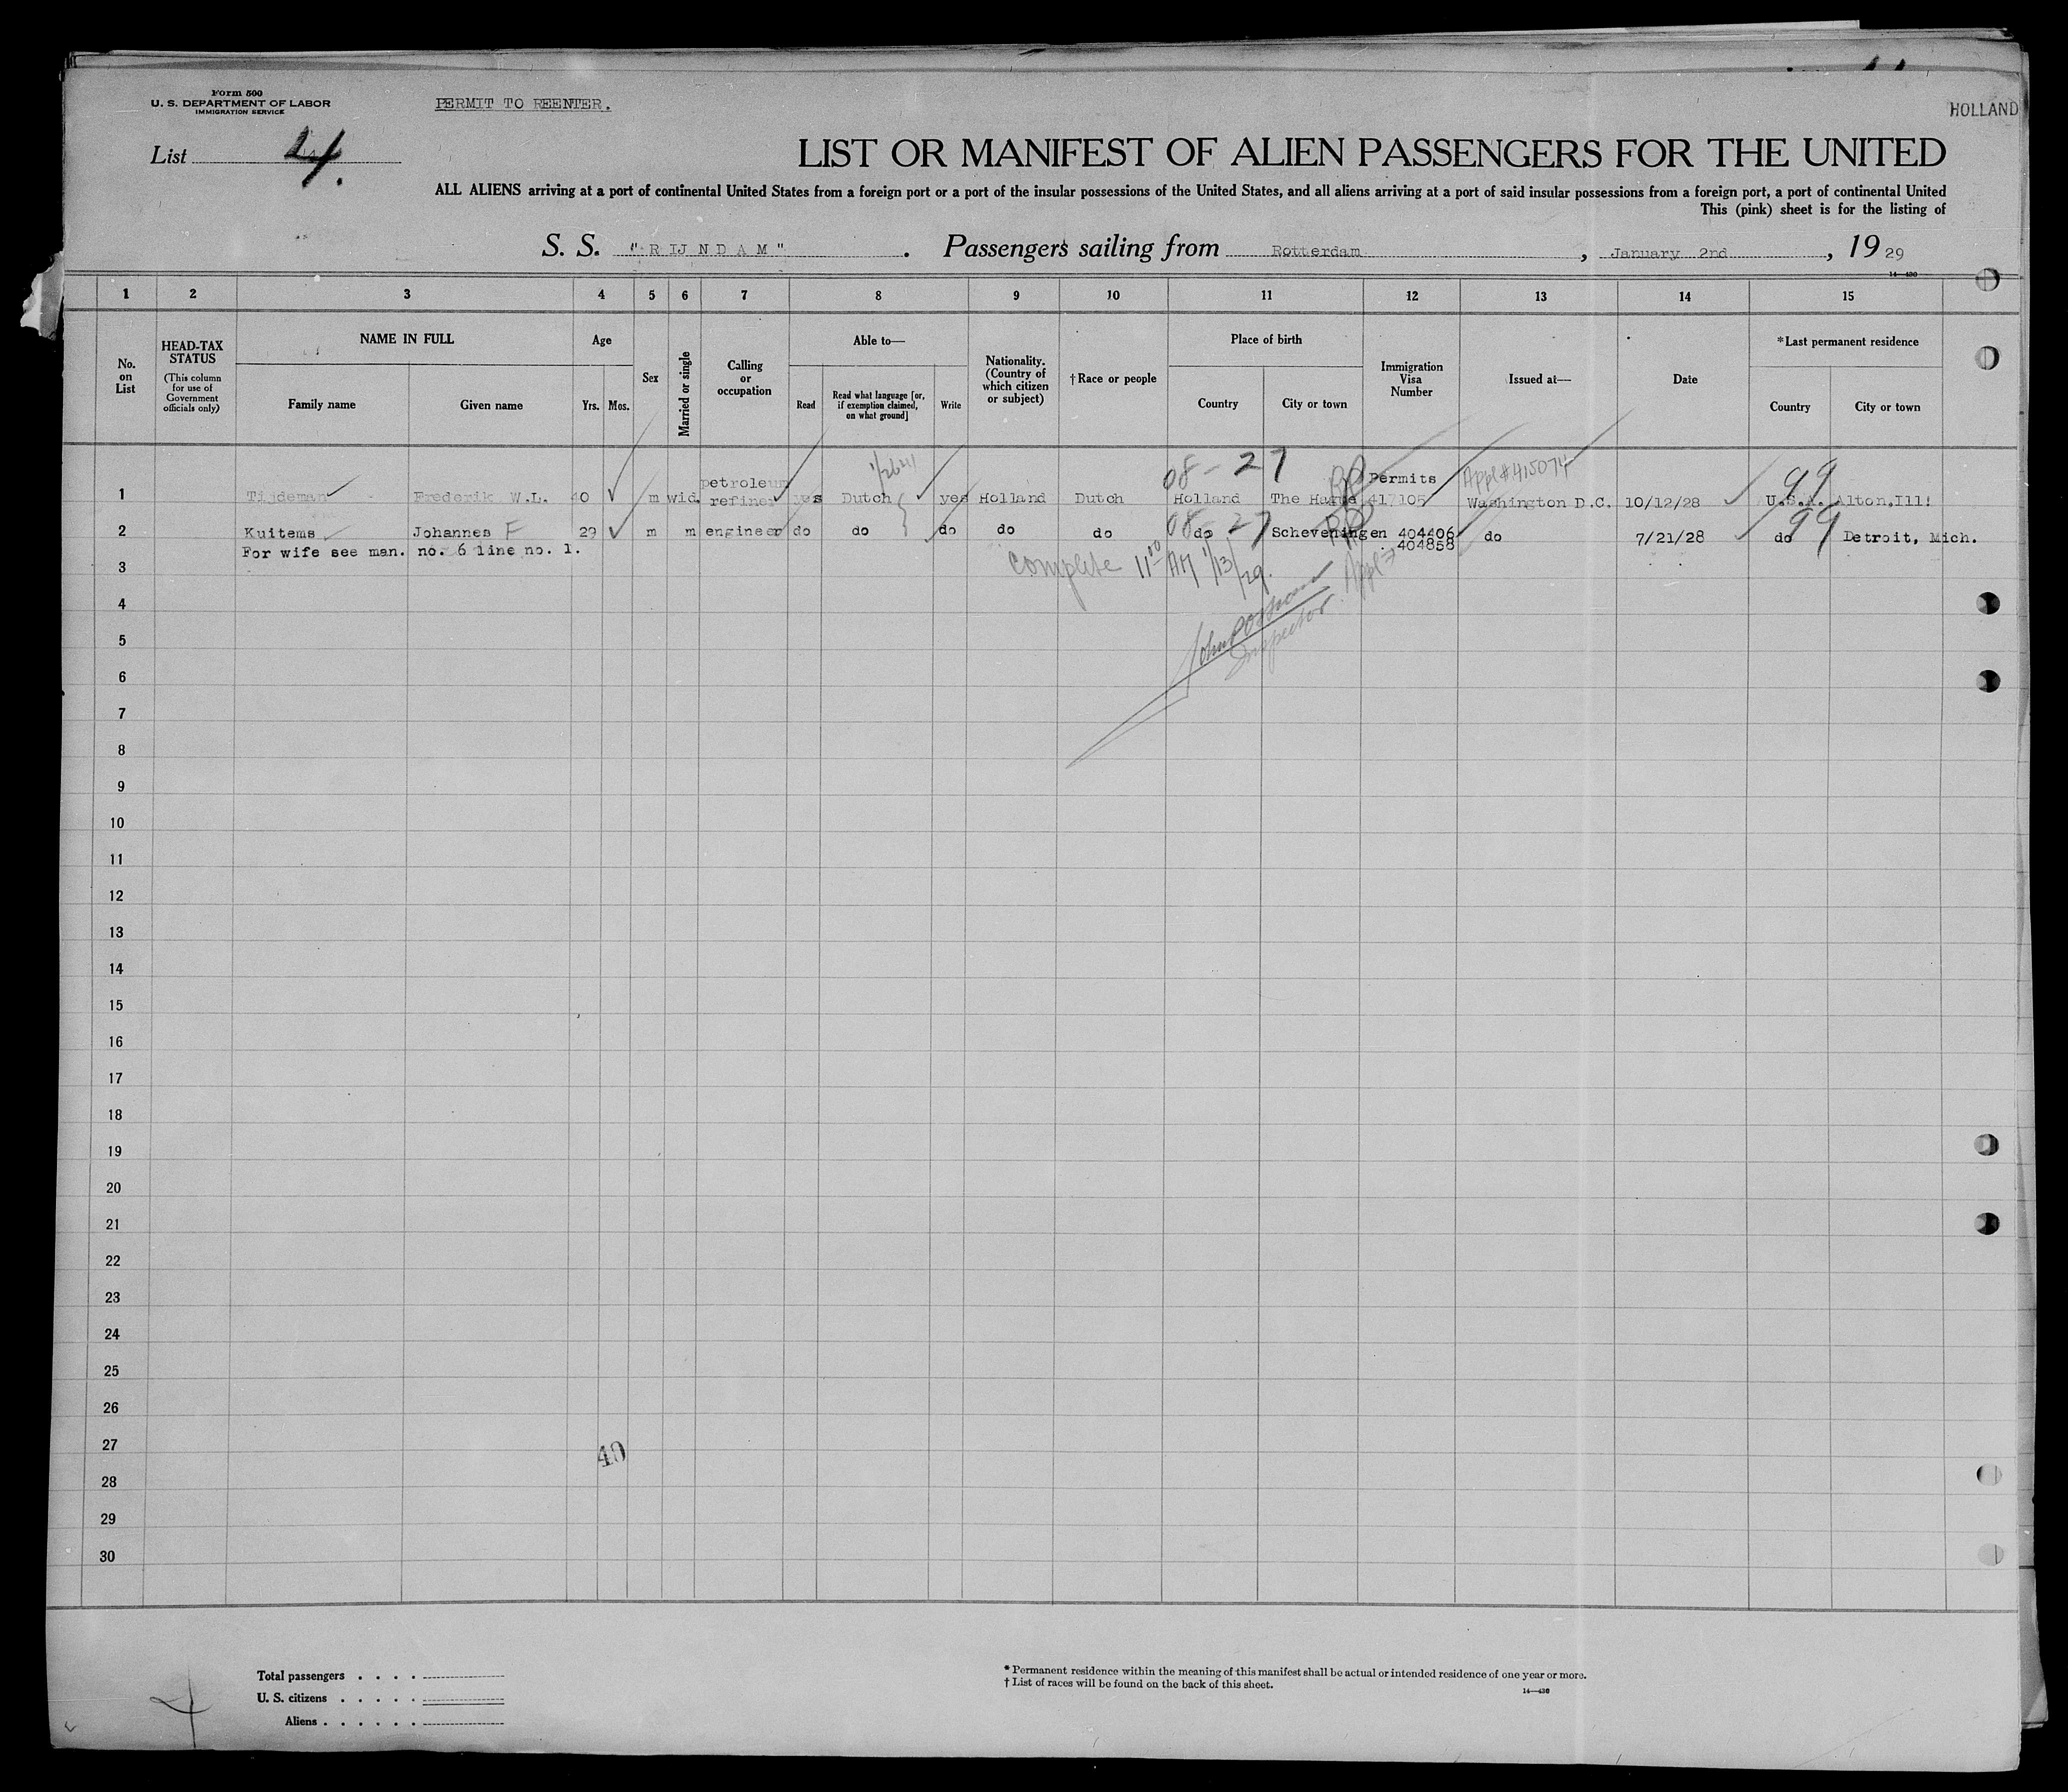 Form 500
U. S. DEPARTMENT OF LABOR
IMMIGRATION SERVICE
PERMIT TO REENTER.
HOLLAND
List 4.
LIST OR MANIFEST OF ALIEN PASSENGERS FOR THE UNITED
ALL ALIENS arriving at a port of continental United States from a foreign port or a port of the insular possessions of the United States, and all aliens arriving at a port of said insular possessions from a foreign port, a port of continental United
This (pink) sheet is for the listing of
S. S. "RIJNDAM". Passengers sailing from Rotterdam, January 2nd, 1929
14—430
1 2 3 4 5 6 7 8 9 10 11 12 13 14 15
No. on List
HEAD-TAX STATUS (This column for use of Government officials only)
NAME IN FULL
Family name Given name
Age
Yrs. Mos.
Sex
Married or single
Calling or occupation
Able to—
Read Read what language [or, if exemption claimed, on what ground] Write
Nationality. (Country of which citizen or subject)
†Race or people
Place of birth
Country City or town
Immigration Visa Number
Issued at—
Date
*Last permanent residence
Country City or town
08-27 Permits Appl#415074 99
1 Tijdeman Frederik W.L. 40 m wid. petroleum refiner yes Dutch yes Holland Dutch Holland The Hague 417105 Washington D.C. 10/12/28 U.S.A. Alton,Ill!
08-27 99
2 Kuitems Johannes F 29 m m engineer do do do do do do Scheveningen 404406 do 7/21/28 do Detroit, Mich.
For wife see man. no. 6 line no. 1. 404858
Complete 11 00 AM 1/13/29. Appl#
3
4
Inspector.
5
6
7
8
9
10
11
12
13
14
15
16
17
18
19
20
21
22
23
24
25
26
27
40
28
29
30
Total passengers . . . .
U. S. citizens . . . . .
Aliens . . . . . .
* Permanent residence within the meaning of this manifest shall be actual or intended residence of one year or more.
† List of races will be found on the back of this sheet.
14—430